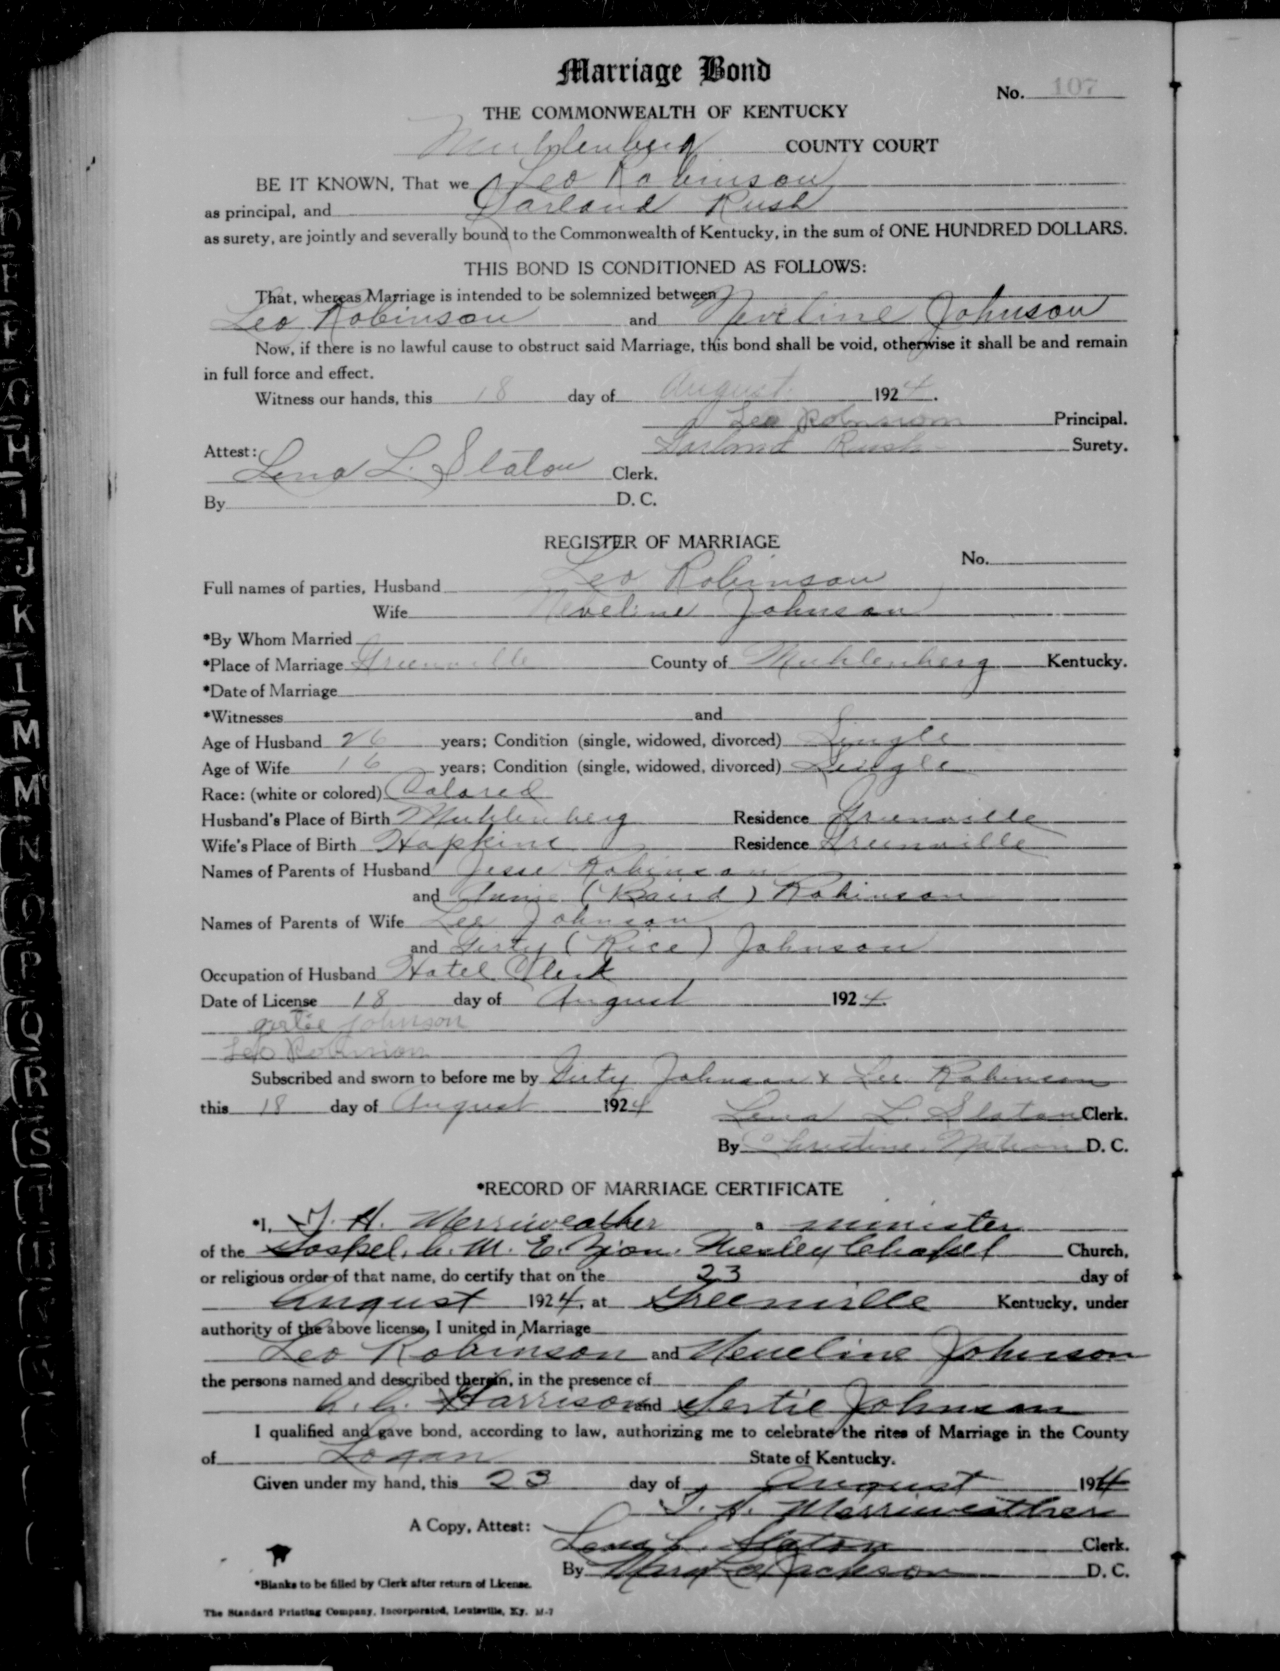 Marriage Bond
No. 107
THE COMMONWEALTH OF KENTUCKY
Muhlenberg COUNTY COURT
BE IT KNOWN, That we Leo Robinson
as principal, and Garland Rush
as surety, are jointly and severally bound to the Commonwealth of Kentucky, in the sum of ONE HUNDRED DOLLARS.
THIS BOND IS CONDITIONED AS FOLLOWS:
That, whereas Marriage is intended to be solemnized between
Leo Robinson and Neveline Johnson
Now, if there is no lawful cause to obstruct said Marriage, this bond shall be void, otherwise it shall be and remain
in full force and effect.
Witness our hands, this 18 day of August 1924.
Leo Robinson Principal.
Garland Rush Surety.
Attest:
Lena L. Slaton Clerk.
By D. C.
REGISTER OF MARRIAGE
No.
Full names of parties, Husband Leo Robinson
Wife Neveline Johnson
*By Whom Married
*Place of Marriage Greenville County of Muhlenberg Kentucky.
*Date of Marriage
*Witnesses and
Age of Husband 26 years; Condition (single, widowed, divorced) Single
Age of Wife 16 years; Condition (single, widowed, divorced) Single
Race: (white or colored) Colored
Husband's Place of Birth Muhlenberg Residence Greenville
Wife's Place of Birth Hopkins Residence Greenville
Names of Parents of Husband Jesse Robinson
and Annie (Baird) Robinson
Names of Parents of Wife Lee Johnson
and Girty (Rice) Johnson
Occupation of Husband Hotel Clerk
Date of License 18 day of August 1924.
Gertie Johnson
Leo Robinson
Subscribed and sworn to before me by Girty Johnson & Leo Robinson
this 18 day of August 1924
Lena L. Slaton Clerk.
By Christine Nation D. C.
*RECORD OF MARRIAGE CERTIFICATE
*I, T. H. Merriweather a minister
of the Gospel. A. M. E. Zion. Wesley Chapel Church,
or religious order of that name, do certify that on the 23 day of
August 1924, at Greenville Kentucky, under
authority of the above license, I united in Marriage
Leo Robinson and Neveline Johnson
the persons named and described therein, in the presence of
Harrison and Gertie Johnson
I qualified and gave bond, according to law, authorizing me to celebrate the rites of Marriage in the County
of Logan State of Kentucky.
Given under my hand, this 23 day of August 1924
T. H. Merriweather
A Copy, Attest:
Lena L. Slaton Clerk.
By Jackson D. C.
*Blanks to be filled by Clerk after return of License.
The Standard Printing Company, Incorporated, Louisville, Ky. M-7